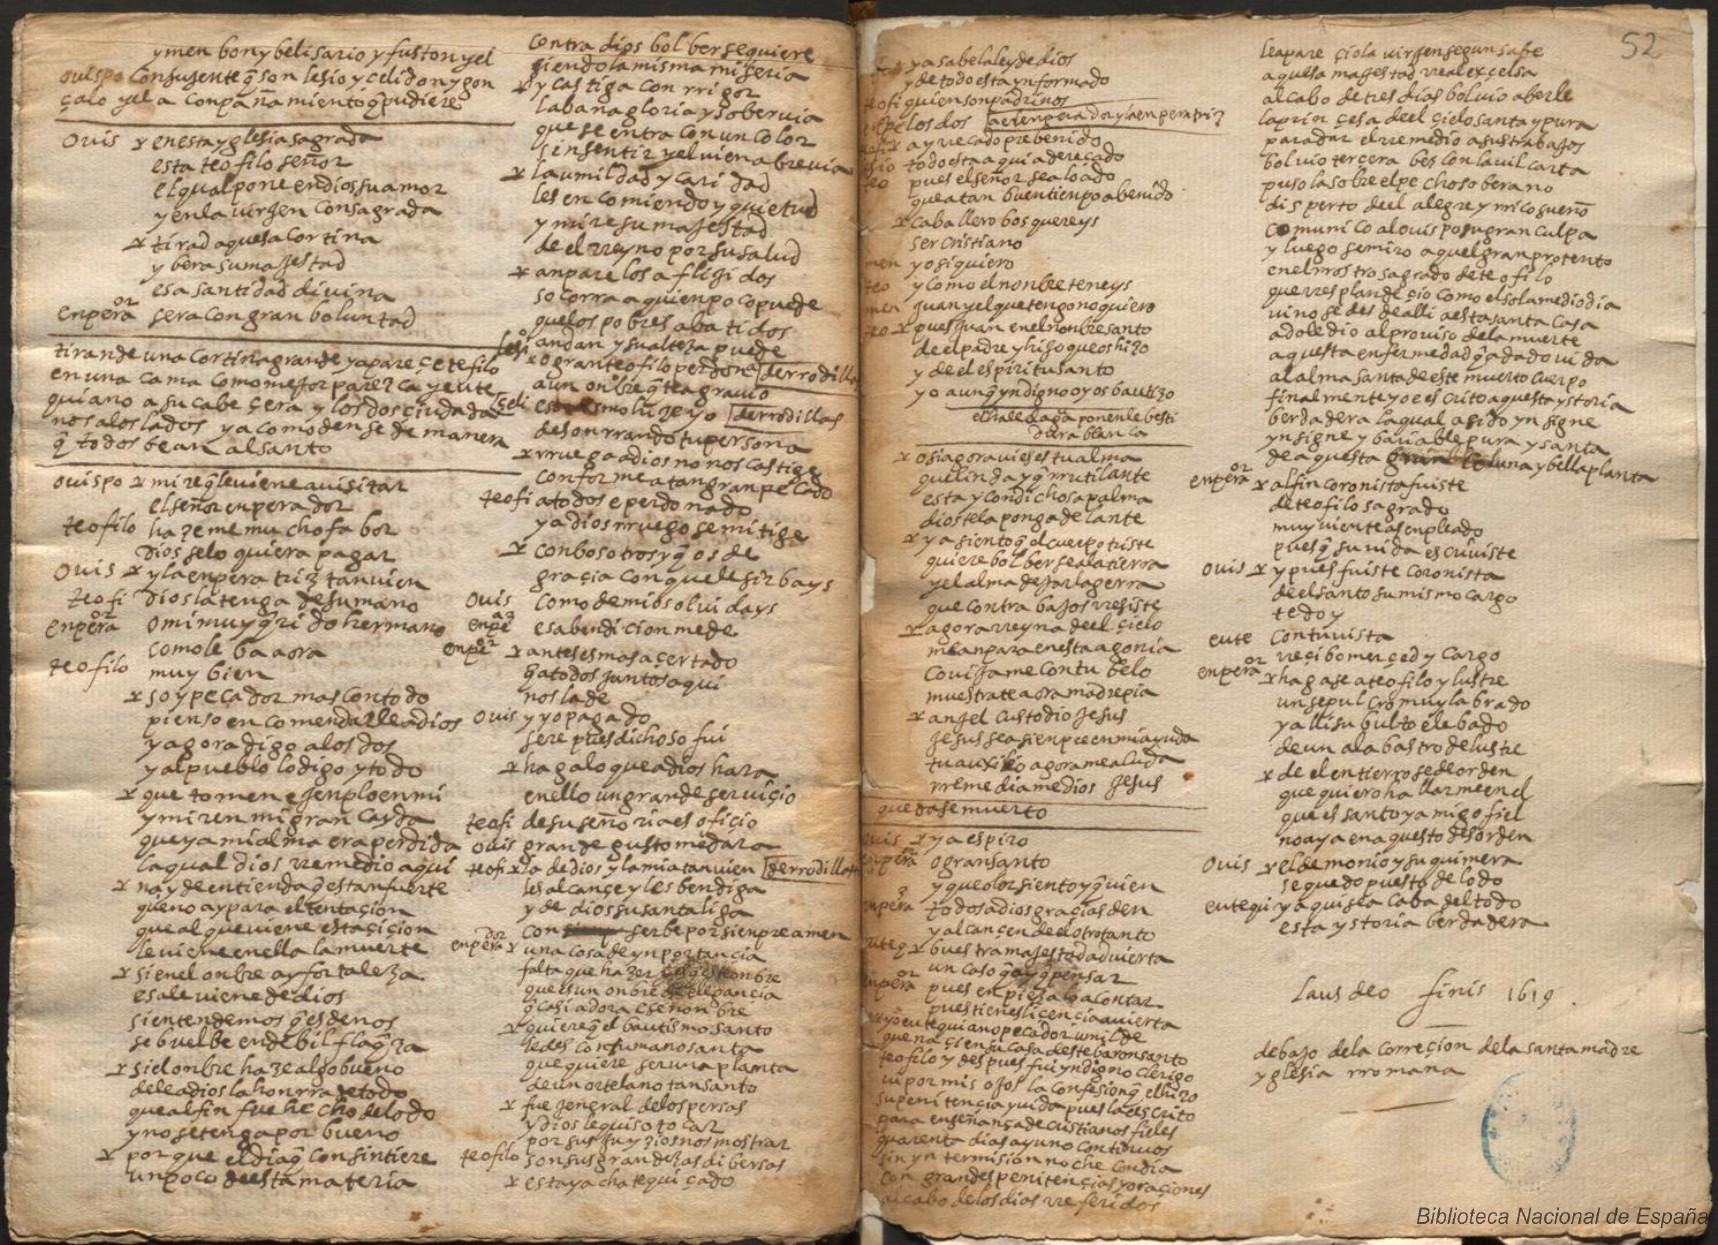 ymen bon y belisario y fuston y el
ouispo Consusente q̄ son lesio y celidon y gon
çalo y el aConpañamiento q̄ pudiere
ouis en esta yglesia sagrada
esta teofilo señor
el qual pone en dios su amor
y en la uirjen Consagrada
tirad aquesa Cortina
y bera su majestad
esa santidad diuina
enperaor sera con gran boluntad
tiran de una cortina grande y apareçe teofilo
en una cama como mejor parezca y eute
quiano a su cabeçera y los dos ciudada
nos a los lados ya como dense de manera
q̄ todos bean al santo
ouispo mire q̄ le uiene a uisitar
el señor enperador
teofilo hazeme mucho fabor
Dios se lo quiera pagar
ouis y la enperatriz tanuien
teofi Dios la tenga de su mano
enperaor o mi muy q̄rido hermano
como le ba aora
teofilo muy bien
soy pecador mas con todo
pienso encomendalle a dios
y agora digo a los dos
y al pueblo lo digo y todo
que tomen ejenplo en mi
y miren mi gran cayda
que ya mi alma era perdida
la qual dios rremedio aqui
nayde entienda q̄ es tan fuerte
que no ay para el tentaçion
que al que uiene estaçicion
le uiene en ella la muerte
si en el onbre ay fortaleza
esa le uiene de dios
si entendemos q̄ es de nos
se buelbe en debil flaq̄za
si el onbre haze algo bueno
dele a dios la honrra de todo
que al fin fue hecho de lodo
y no se tenga por bueno
por que el dia q̄ consintiere
un poco de esta materia
contra dios bolberse quiere
siendo la misma miseria
y castiga con rrigor
la bana gloria y soberuia
que se entra con un color
sin sentir y el uiena brevia
la umildad y caridad
les encomiendo y quietud
y mire su majestad
de el rreyno por su salud
anpare los aflijidos
socorra a quien poco puede
que los pobres abatidos
andan y su alteza puede
lesio o gran teofilo perdona de rrodillas
a un onbre q̄ te agrauio
çeli eso mesmo hize yo de rrodillas
desonrrando tu persona
rruega a dios no nos castige
conforme a tan gran pecado
teofi a todos e perdonado
y a dios rruego se mitige
con bosotros y q̄ os de
graçia con que le sirbays
ouis como de mi os oluidays
enpeaz esa bendiçion me de
enpeor antes es mas açertado
q̄ a todos juntos aqui
nos la de
ouis y yo pagado
sere pues dichoso fui
hagalo que a dios hara
en ello un grande seruiçio
teofi de su señoria es ofiçio
ouis grande gusto me dara
teofi la de dios y la mia tanuien de rrodillas
les alcançe y les bendiga
y de dios su santa liga
con serbe por sienpre amen
enperador una cosa de ynportancia
falta que hazer
que es un onbre de elegancia
q̄ casi adora ese nonbre
quiere q̄ el bautismo santo
le des con su mano santa
que quiere ser una planta
de un ortelano tan santo
fue jeneral de los persas
y dios le quiso tocar
por sus juyzios nos mostrar
teofilo son sus grandezas dibersas
esta ya chatequiçado
ya sabe la ley de dios
y de todo esta ynformado
teofi quien son padrinos
los dos a el enperador y la enperatriz
ay rrecado prebenido
todo esta aqui adereçado
teo pues el señor sea loado
que a tan buen tienpo a benido
caballero bos quereys
ser cristiano
men yo si quiero
teo y como el nonbre teneys
men juan y el que tengo no quiero
teo pues juan en el nonbre santo
de el padre y hijo que os hizo
y de el espiritu santo
yo aunq̄ yndigno oy os bautizo
echale el aga ponenle besti
dura blanca
osi agora uieses tu alma
que linda y q̄ rrutilante
esta y con dichosa palma
dios te la ponga delante
ya siento q̄ el cuerpo triste
quiere bolberse a la tierra
y el alma dejar la gerra
que contra bajos rresiste
agora rreyna de el çielo
me anpara en esta agonia
couijame con tu belo
muestrate aora madre pia
anjel custodio jesus
jesus sea sienpre en mi ayuda
tu auxilio agora me acuda
rremedia medios jesus
quedase muerto
ouis ya espiro
enpera o gran santo
y que olor siento y q̄ uien
enpera todos a dios graçias den
y alcançen de el otro tanto
euteq̄ buestra majestad aduierta
un caso q̄ ay q̄ pensar
enperaor pues enpieza lo a contar
pues tienes licençia auierta
yo eutequiano pecador umilde
que naçi en su casa deste baron santo
teofilo y despues fui yndigno clerigo
ui por mis ojos la confesion q̄ el hizo
su penitençia y uida pues la e escrito
para enseñança de cristianos fieles
quarenta dias ayuno continuos
sin yntermision noche con dia
con grandes penitençias y oraçiones
al cabo de los dias rreferidos
52
le apareçio la uirjen segun sabe
aquesa majestad rreal exçelsa
al cabo de tres dias boluio a berle
la prinçesa de el çielo santa y pura
para dar el rremedio a sus trabajos
boluio tercera bez con la uil carta
pusola sobre el pecho soberano
disperto de el alegre y rrico sueño
comunico al ouispo su gran culpa
y luego se miro aquel gran protento
en el rrostro sagrado de teofilo
que rresplandeçio como el sol a medio dia
uinose desde alli a esta santa casa
adole dio al prouiso de la muerte
aquesta enfermedad q̄ a dado uida
al alma santa de este muerto cuerpo
finalmente yo e escrito aquesta ystoria
berdadera la qual a sido ynsigne
ynsigne y bariable pura y santa
de aquesta gran coluna y bella planta
enperaor al fin coronista fuiste
de teofilo sagrado
muy uien te as enpleado
pues q̄ su uida escriuiste
ouis y pues fuiste coronista
de el santo su mismo cargo
te doy
eute con tu uista
rreçibo merçed y cargo
enperaor hagase a teofilo y lustre
un sepulcro muy labrado
y alli su bulto elebado
de un alabastro de lustre
de el entierro se de orden
que quiero hallarme en el
que es santo y amigo fiel
no aya en aquesto desorden
ouis y el demonio y su quimera
se quedo puesto de lodo
eutequi y aqui se acaba del todo
esta ystoria berdadera
Laus deo finis 1619.
debajo de la correçion de la santa madre
yglesia rromana
Biblioteca Nacional de España